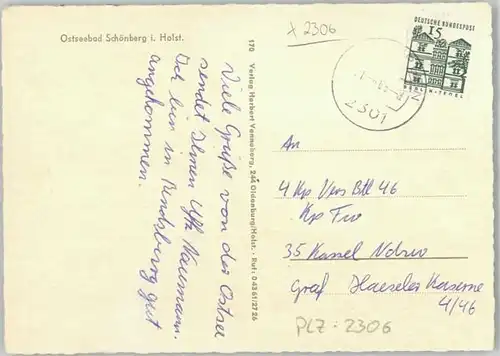 Ostseebad Schönberg i. Holst.
x 2306
DEUTSCHE BUNDESPOST
15
BERLIN-TEGEL
2301
170 Verlag Herbert Vannauberg, 244 Oldenburg/Holst. · Ruf: 04361/2726
Viele Grüße von der Ostsee
sendet Ihnen Uffz Naumann.
Ich bin in Rendsburg gut
angekommen.
An
4 Kp Vers Btl 46
Kp Trp
35 Kassel Ndzw
Graf Haeseler Kaserne
4/46
PLZ-2306